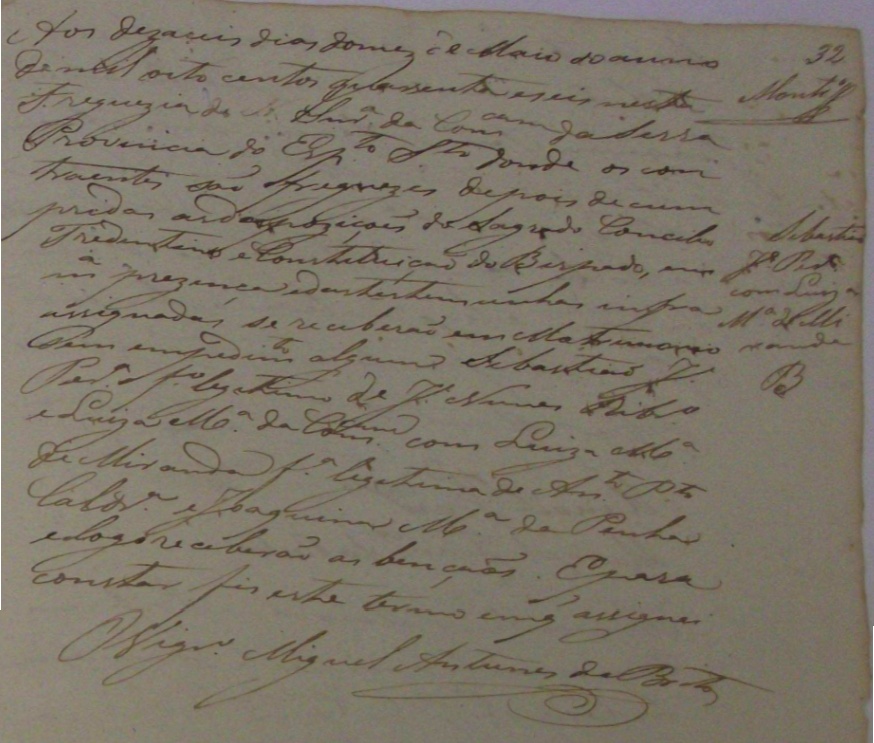 32
Aos dezaseis dias do mez de Maio do anno
de mil oito centos quarenta e seis nesta
Freguezia de N. Snrª. da Concam da Serra
Provincia do Esp.to Sto donde os con
traentes são freguezes depois de cum
pridas as despoziçoēs do Sagrado Concilio
Tredentino e Constetuiçaō do Bispado, em
mª prezenca e das testemunhas infra
assignadas se receberaō em Matrimonio
sem empedimto algum Sebastiaō Je.
Perª. fº legitimo de Je. Nunes Ribrº
e Luiza Mª. da Concam com Luiza Mª
de Miranda fª. legitima de Antº Pto
Caldrª. e Joaquina Mª da Penha
e logo receberaō as bençaōs. E para
constar fis este termo em q̃ assignei
O Vigrº. Miguel Antunes de Brito
Sebastiaō
Je Perª
com Luiza
Mª de Mi
randa